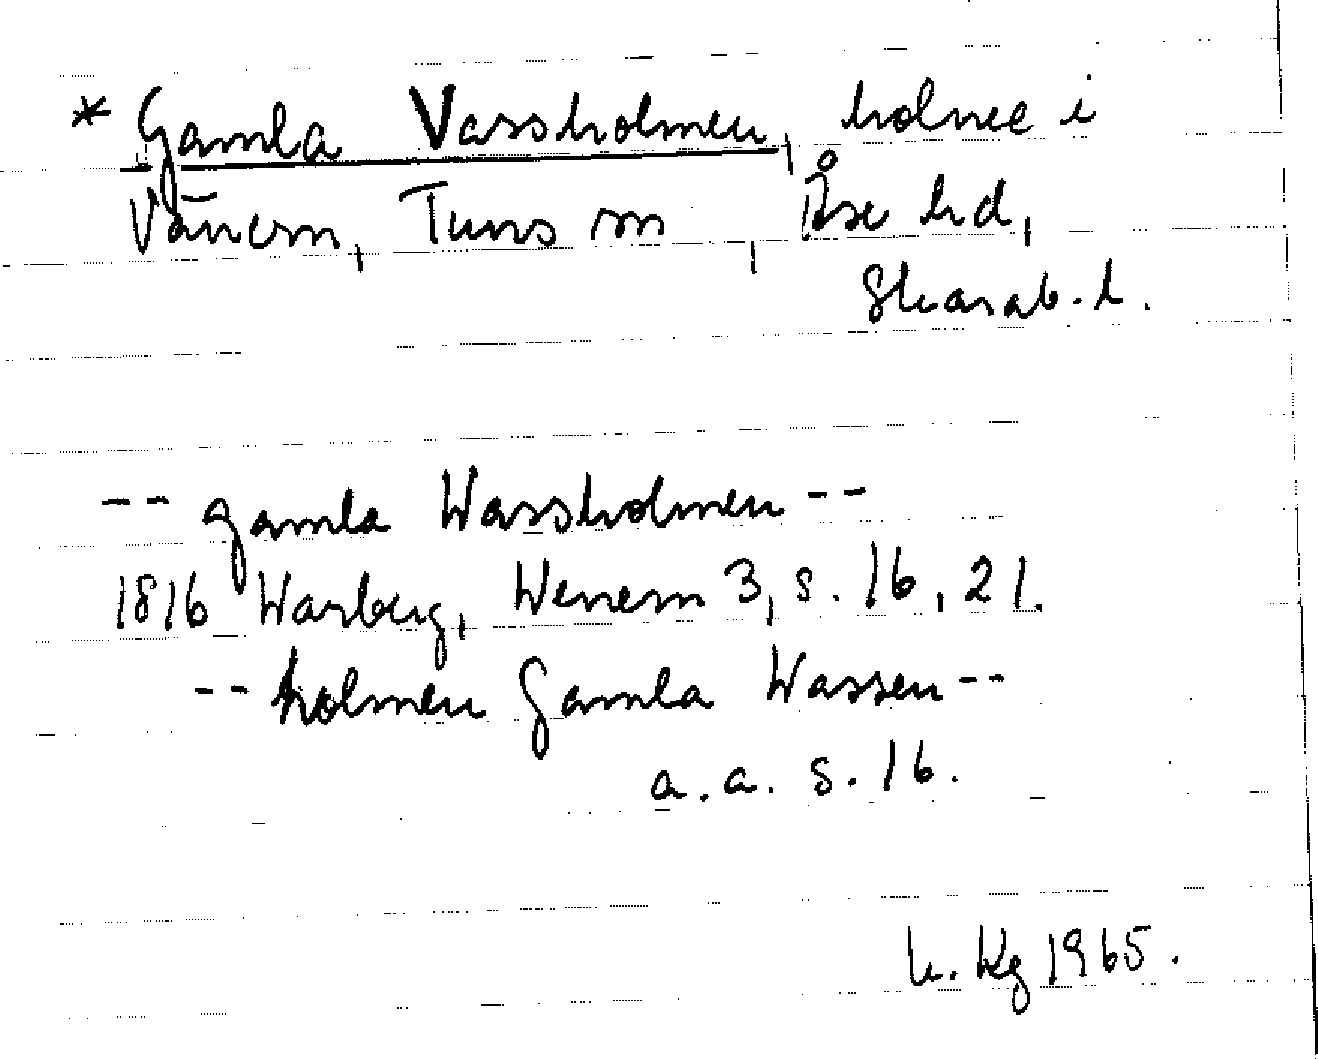 * Gamla Vassholmen, holme i
Vänern, Tuns sn, Åse hd,
Skarab. l.
-- gamla Wassholmen --
1816 Warberg, Wenern 3, s. 16, 21.
-- holmen Gamla Wassen --
a.a. s. 16.
1965.